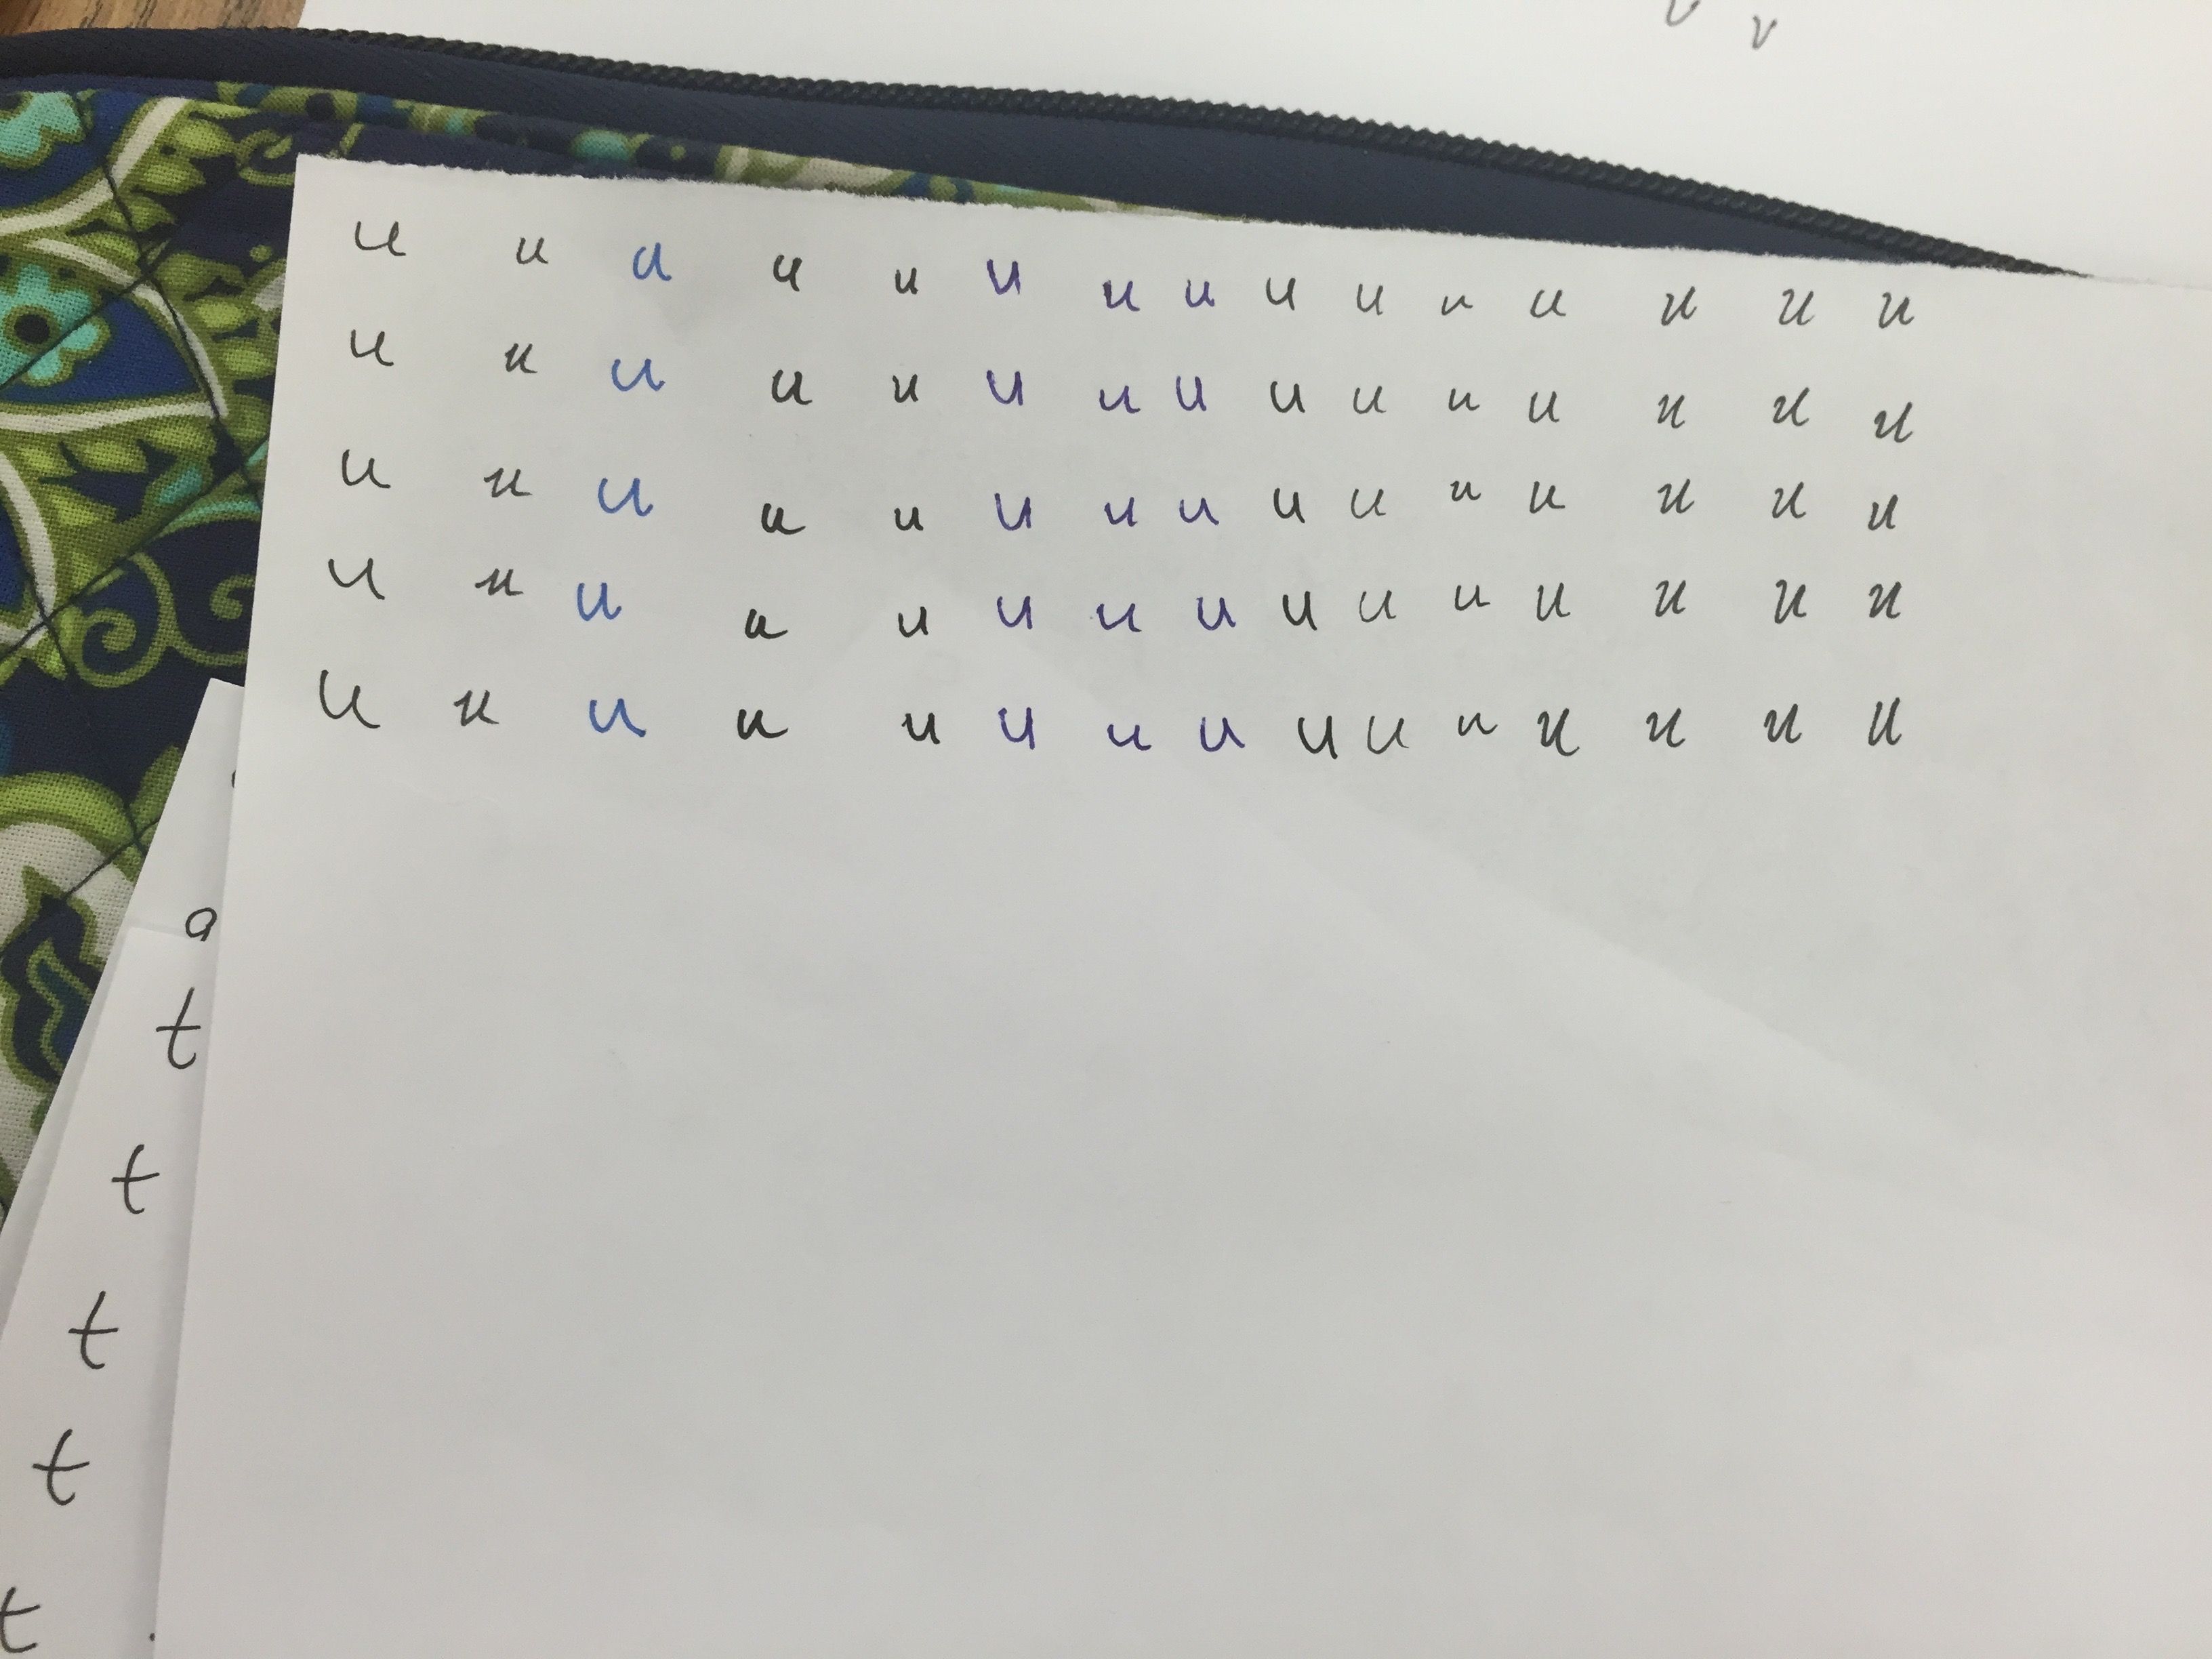 v v
u u u u u u u u u u u u u u u
u u u u u u u u u u u u u u u
u u u u u u u u u u u u u u u
u u u u u u u u u u u u u u u
u u u u u u u u u u u u u u u
a
t
t
t
t
t